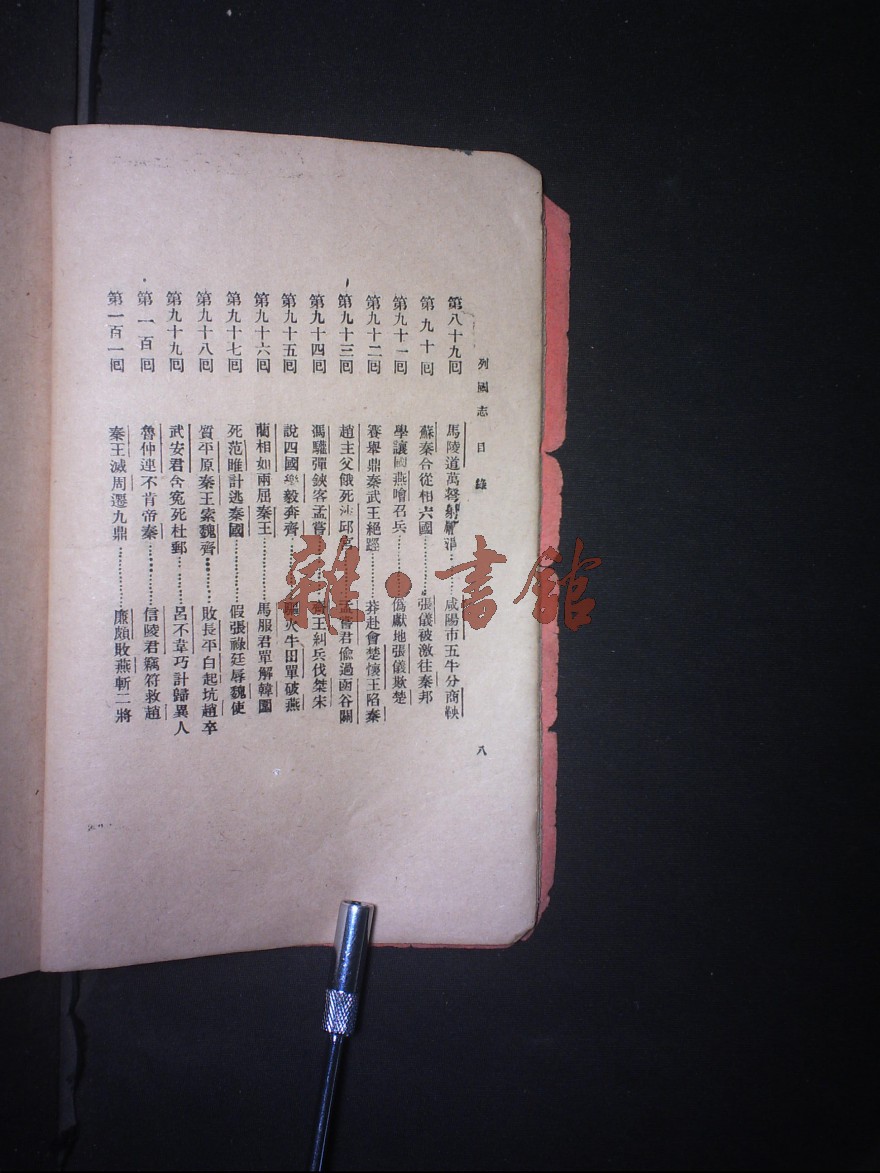 列國志 目錄 八
第八十九回 馬陵道萬弩射龐涓……咸陽市五牛分商鞅
第九十回 蘇秦合從相六國……張儀被激往秦邦
第九十一回 學讓國燕噲召兵……僞獻地張儀欺楚
第九十二回 賽舉鼎秦武王絕脛……莽赴會楚懷王陷秦
第九十三回 趙主父餓死沙邱宮……孟嘗君偷過函谷關
第九十四回 馮驩彈鋏客孟嘗……王糾兵伐桀宋
第九十五回 說四國樂毅奔齊……火牛田單破燕
第九十六回 藺相如兩屈秦王……馬服君單解韓圍
第九十七回 死范雎計逃秦國……假張祿廷辱魏使
第九十八回 質平原秦王索魏齊……敗長平白起坑趙卒
第九十九回 武安君含冤死杜郵……呂不韋巧計歸異人
第一百回 魯仲連不肯帝秦……信陵君竊符救趙
第一百一回 秦王滅周遷九鼎……廉頗敗燕斬二將
雜·書館